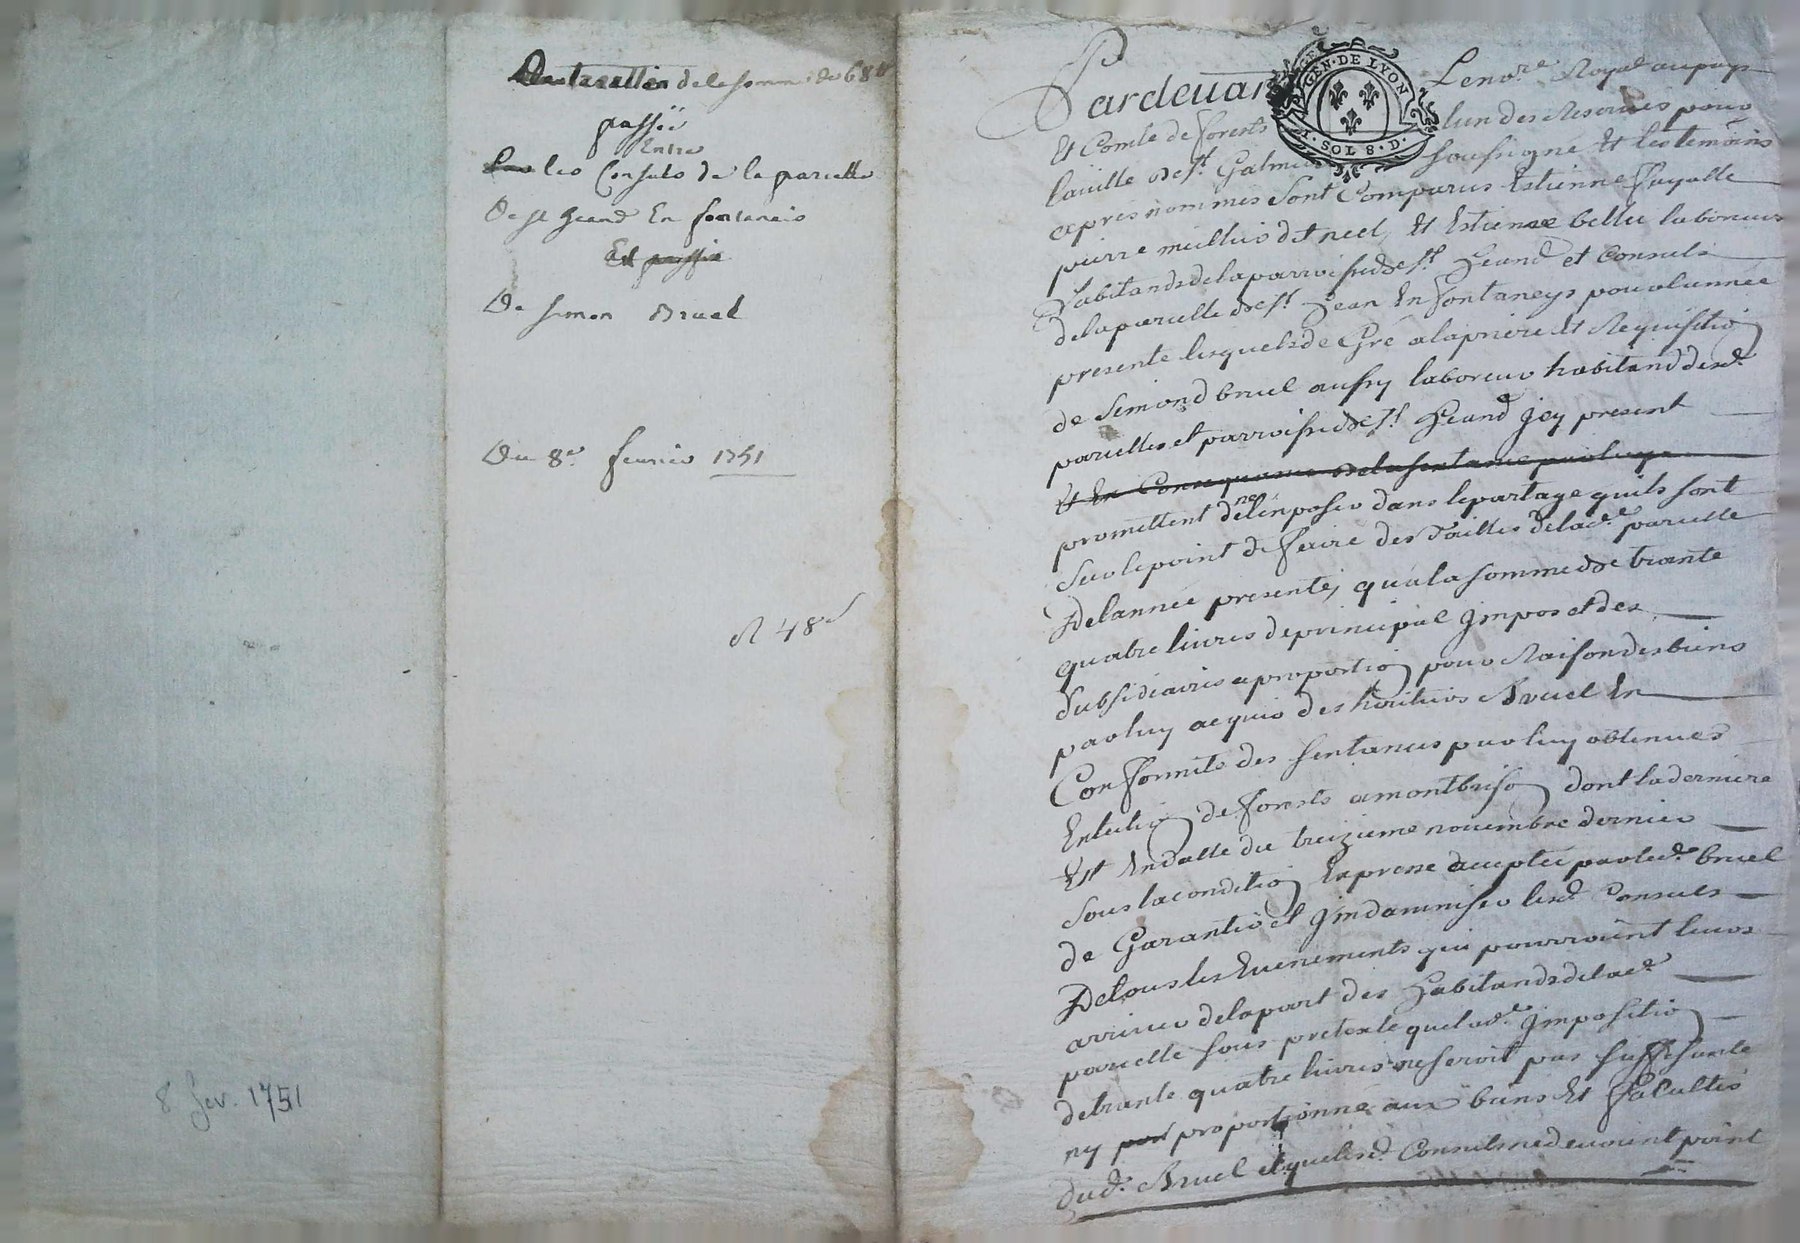 de la somme de 68#
passée
Entre
les Consuls de la parcelle
De st heand En fontaneis
Et passée
De simon Bruel
Du 8e. feurier 1751
8 fev. 1751
Pardeuant Le nore. Royal au pays
GEN. DE LYON
1. SOL 8. D.
Et Comté de forests lun des Reserués pour
la uille de st. Galmier soussigné Et les temoins
apres nommés sont Comparus Estienne fayolle
pierre d t neel, Et Estienne belle laboreurs
habitands de la parroisse de st. heand et Consuls
de la parcelle de st. Jean En fontaneys pour lannée
presente lesquels de Gré a la priere Et Requisition
de simond bruel aussy laboreur habitand desd.
parcelles et parroisse de st. heand jcy present
Et En Consequance de la sentance
promettent de ne lenposer dans le partage quils sont
sur le point de ffaire des Tailles de lade. parcelle
De lannée presente, qu'a la somme de trante
quatre livres de principal jmpos et des
subsidiaires a proportion pour Raison des biens
par luy acquis des heritiers Bruel En
Conformité des sentances par luy obtenues
En lection de fforests a montbrison dont la derniere
Est En datte du treizieme nouembre dernier
sous la condition Expresse acceptée par led. bruel
de Garantir et jndamniser lesd. Consuls
De tous les Euenements qui pourroient leurs
arriuer de la part des habitands de lade.
parcelle sous pretexte que lade. jmposition
de trante quatre livres ne seroit pas suffisante
ny por proportionne aux biens Et facultés
dud. Bruel et que lesd. Consuls ne deuoient point